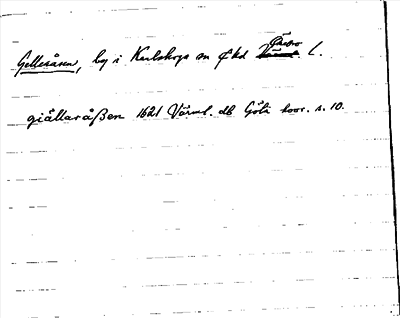 Gelleråsen, by i Karlskoga sn Ö hd Örebro l.
giällaråßen 1621 Värml. db Göta hovr. s. 10.